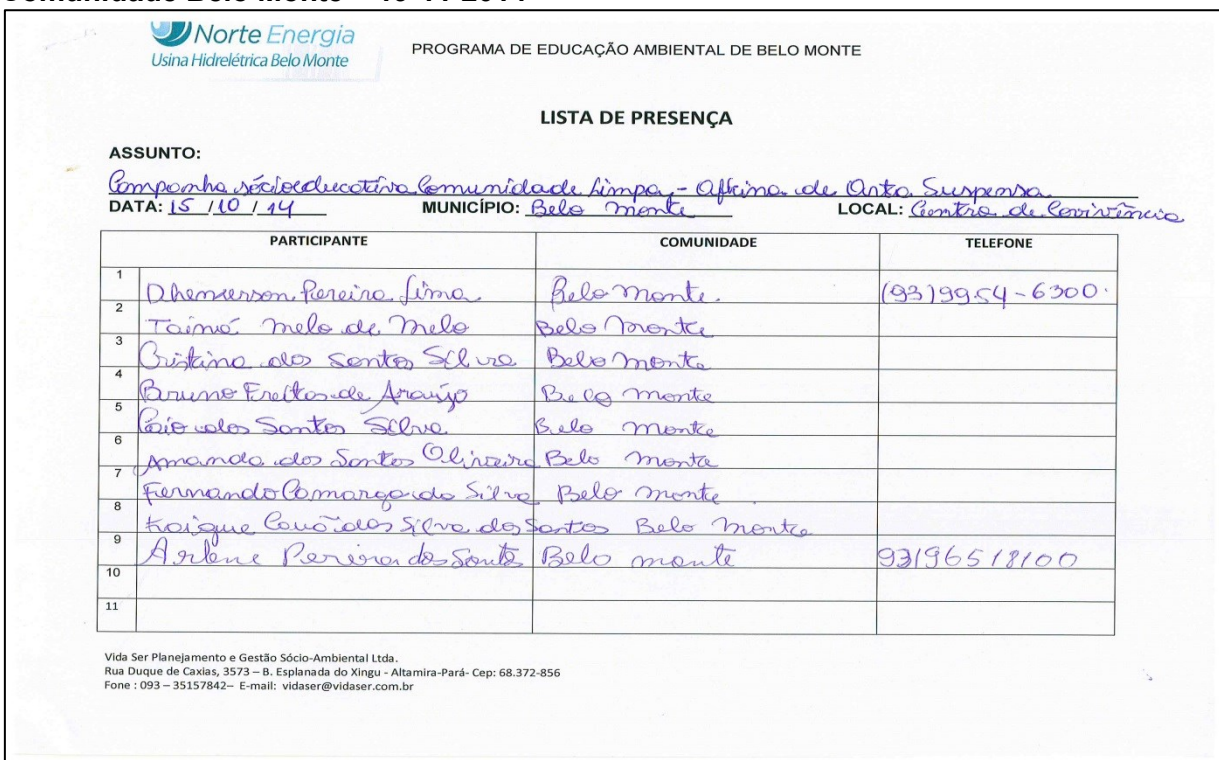 Norte Energia
Usina Hidrelétrica Belo Monte
PROGRAMA DE EDUCAÇÃO AMBIENTAL DE BELO MONTE
LISTA DE PRESENÇA
ASSUNTO:
Companha sócioeducativa Comunidade Limpa - Oficina de Orta Suspensa
DATA: 15 /10 / 14 MUNICÍPIO: Belo monte LOCAL: Centro de Covivência
PARTICIPANTE COMUNIDADE TELEFONE
1 Dhemerson Pereira Lima Belo monte. (93)9954-6300.
2 Tainá melo de melo Belo Monte
3 Cristina dos Santos Silva Belo monte
4 Bruno Freitas de Araújo Belo monte
5 Caio dos Santos Silva Belo monte
6 Amanda dos Santos Oliveira Belo monte
7 Fernando Camargo da Silva Belo monte
8 Kaique Cauã das Silva dos Santos Belo monte
9 Arlene Pereira dos Santos Belo monte 93)96518100
10
11
Vida Ser Planejamento e Gestão Sócio-Ambiental Ltda.
Rua Duque de Caxias, 3573 – B. Esplanada do Xingu - Altamira-Pará- Cep: 68.372-856
Fone : 093 – 35157842– E-mail: vidaser@vidaser.com.br